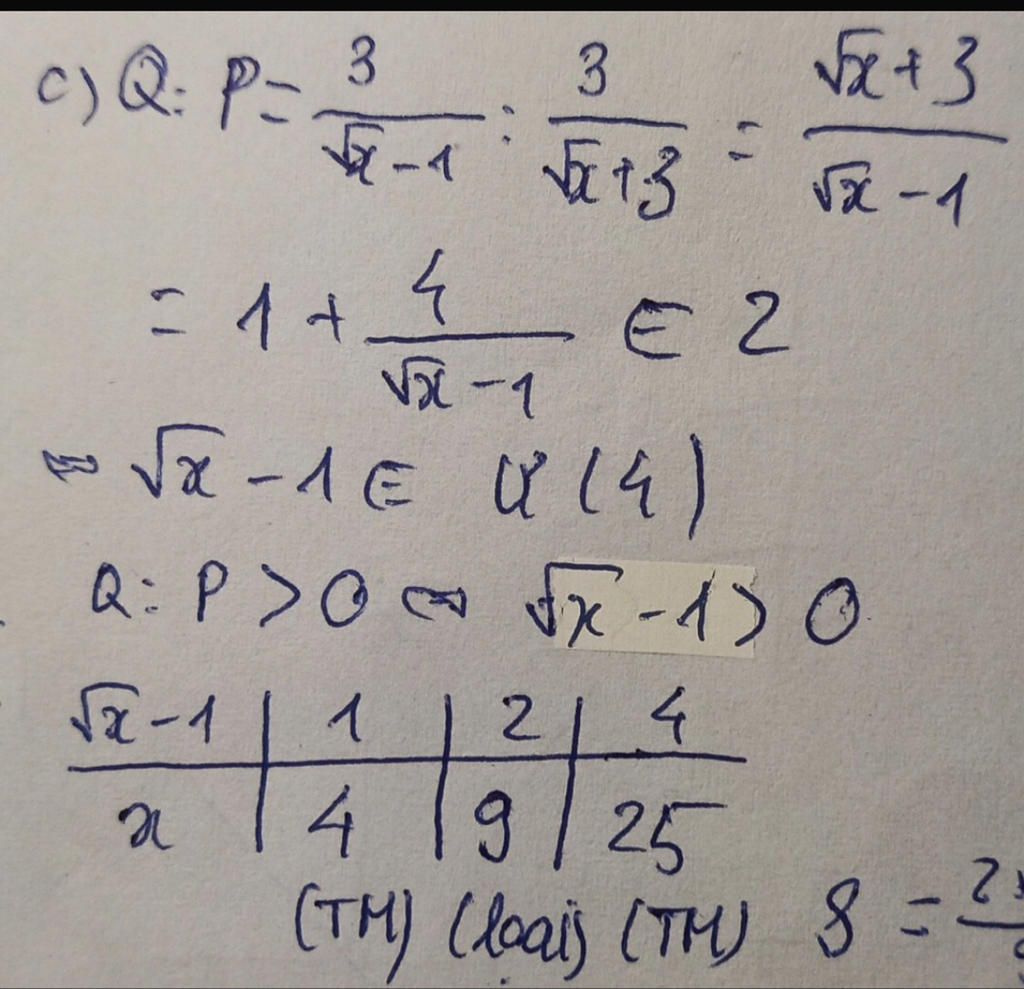 c) Q: P = 3/(√x - 1) : 3/(√x + 3) = (√x + 3)/(√x - 1)
= 1 + 4/(√x - 1) ∈ Z
⇔ √x - 1 ∈ Ư(4)
Q: P > 0 ⇔ √x - 1 > 0
√x - 1 | 1 | 2 | 4
x | 4 | 9 | 25
(TM) (loại) (TM) S =